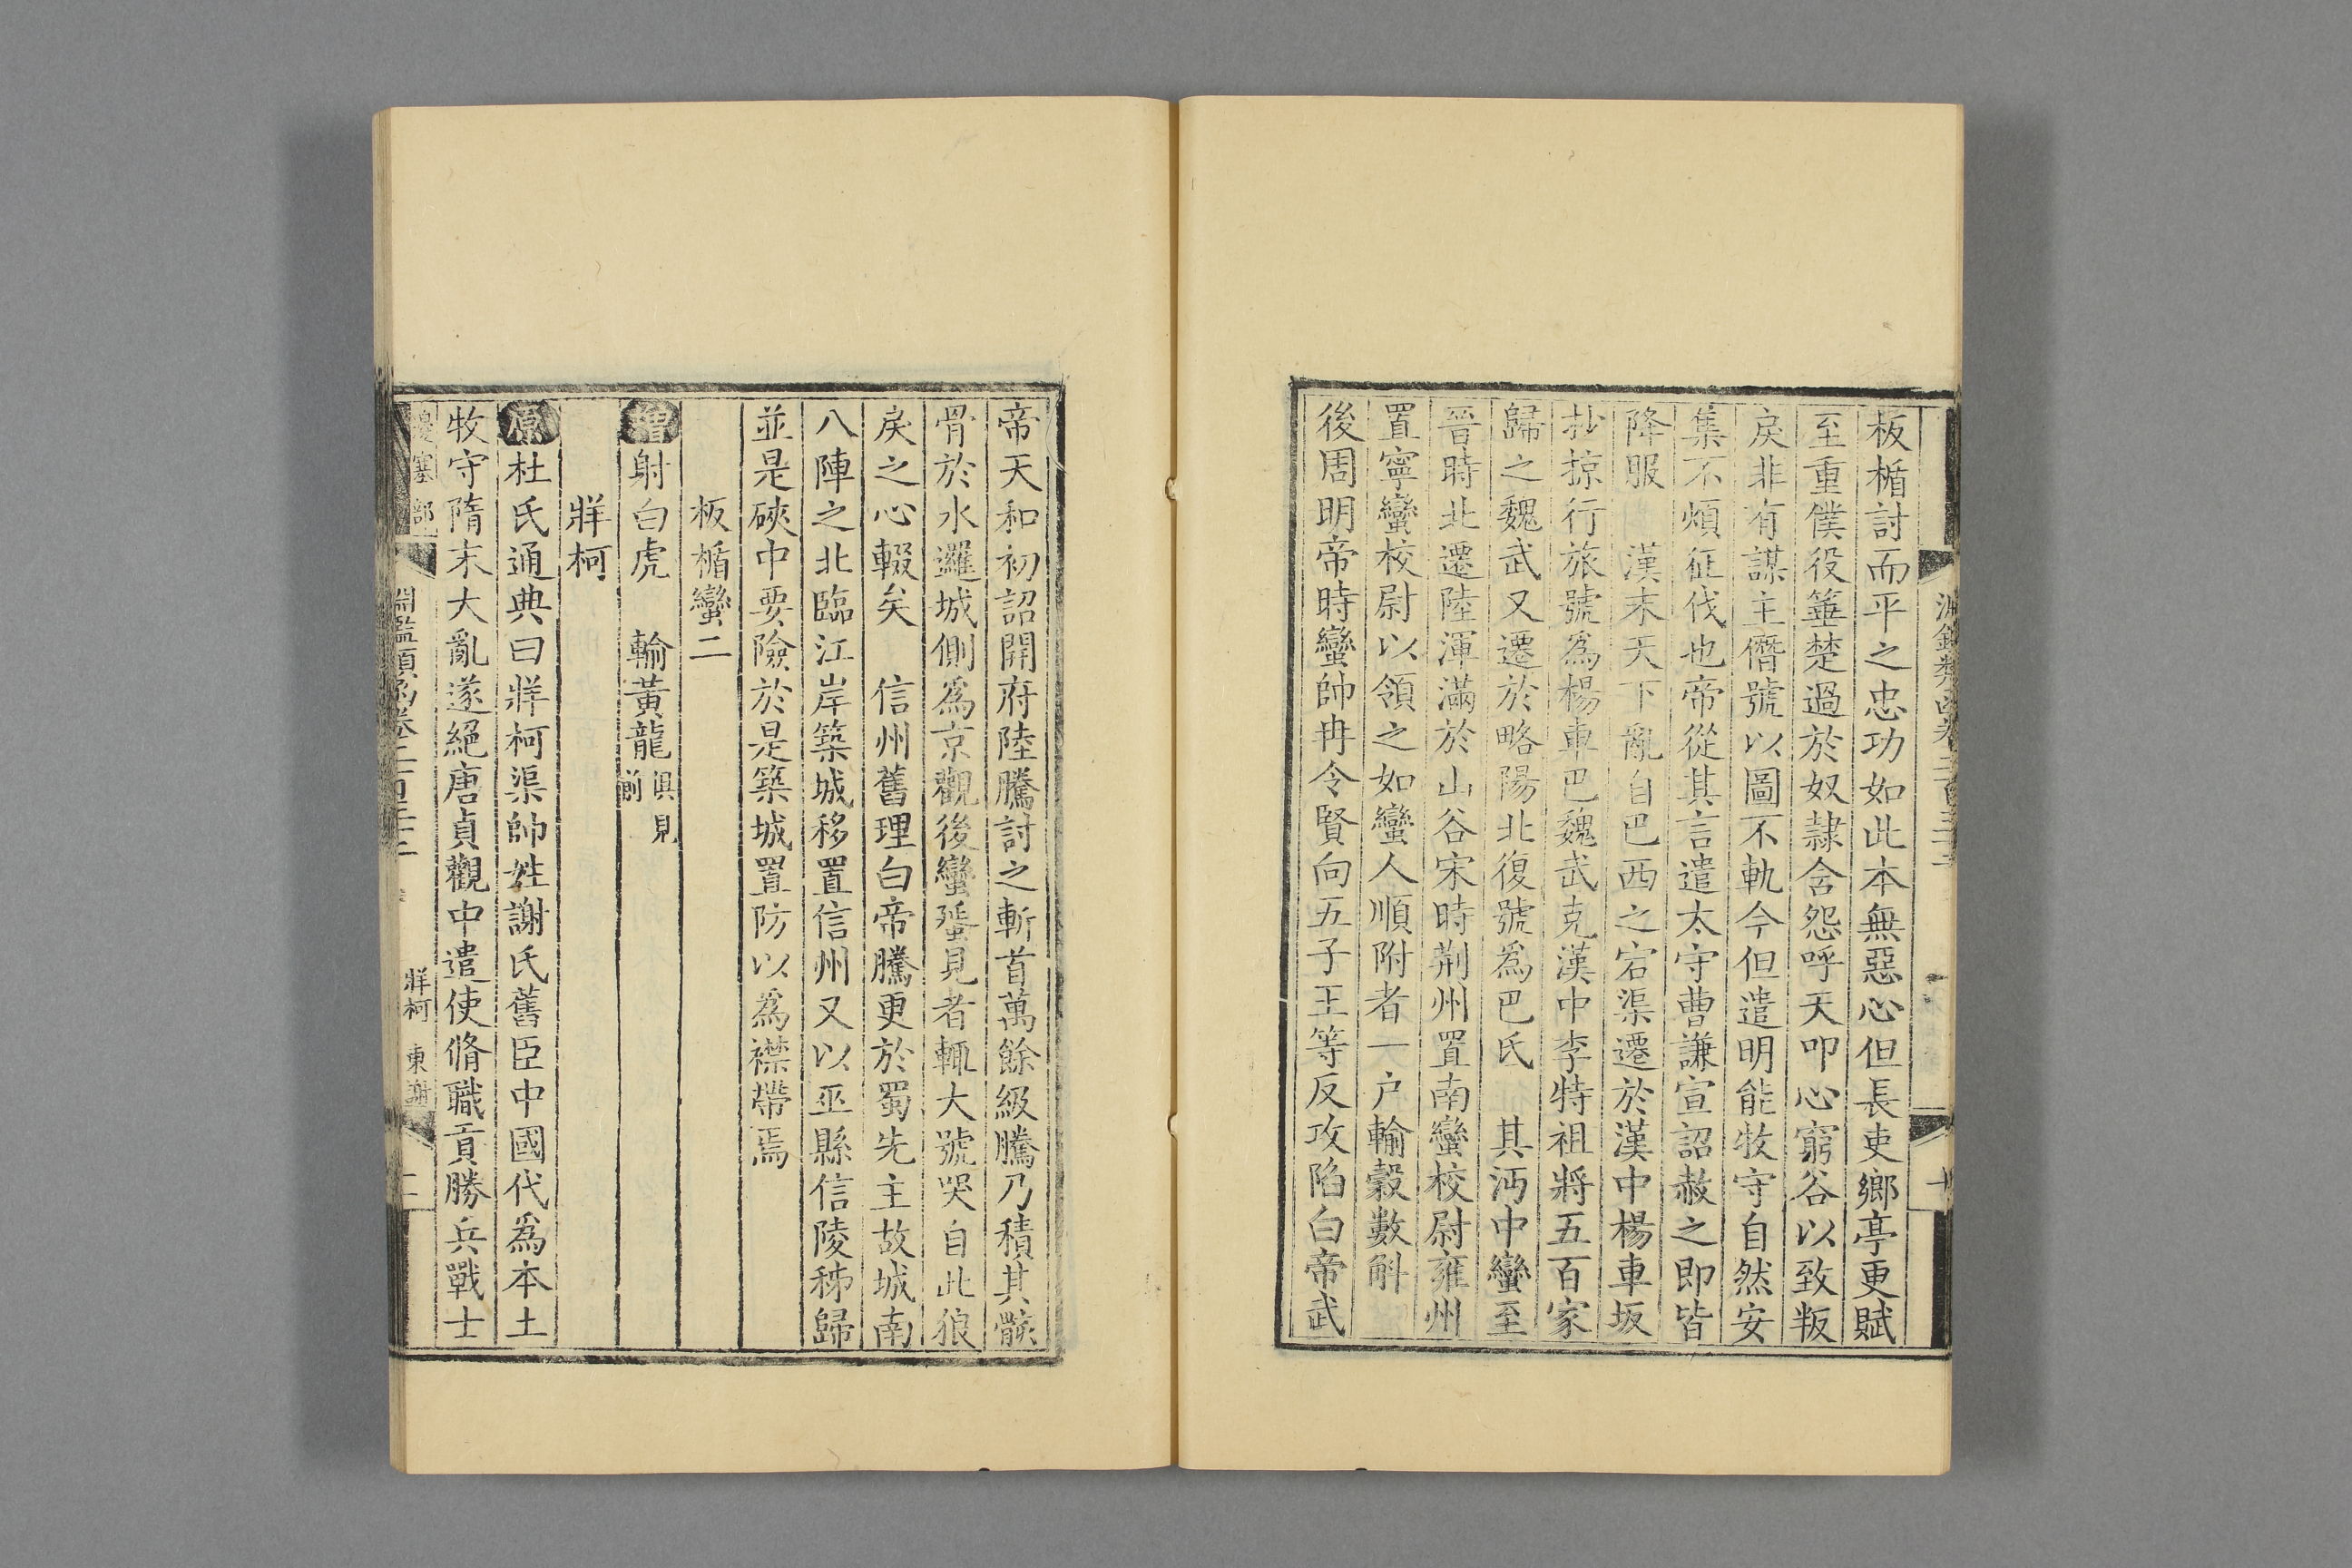 板楯討而平之忠功如此本無惡心但長吏鄉亭更賦
至重僕役箠楚過於奴隸含怨呼天叩心窮谷以致叛
戾非有謀主僭號以圖不軌今但遣明能牧守自然安
集不煩征伐也帝從其言遣太守曹謙宣詔赦之即皆
降服　漢末天下亂自巴西之宕渠遷於漢中楊車坂
抄掠行旅號爲楊車巴魏武克漢中李特祖將五百家
歸之魏武又遷於略陽北復號爲巴氐　其沔中蠻至
晉時北遷陸渾滿於山谷宋時荆州置南蠻校尉雍州
置寧蠻校尉以領之如蠻人順附者一户輸穀數斛
後周明帝時蠻帥冉令賢向五子王等反攻陷白帝武
帝天和初詔開府陸騰討之斬首萬餘級騰乃積其骸
骨於水邏城側爲京觀後蠻蜑見者輒大號哭自此狼
戾之心輟矣　信州舊理白帝騰更於蜀先主故城南
八陣之北臨江岸築城移置信州又以巫縣信陵秭歸
並是硤中要險於是築城置防以爲襟帶焉
板楯蠻二
增射白虎　輸黃龍俱見前
牂柯
原杜氏通典曰牂柯渠帥姓謝氏舊臣中國代爲本土
牧守隋末大亂遂絕唐貞觀中遣使脩職貢勝兵戰士
邊塞部　淵鑑類函卷二百三十二　牂柯　東謝